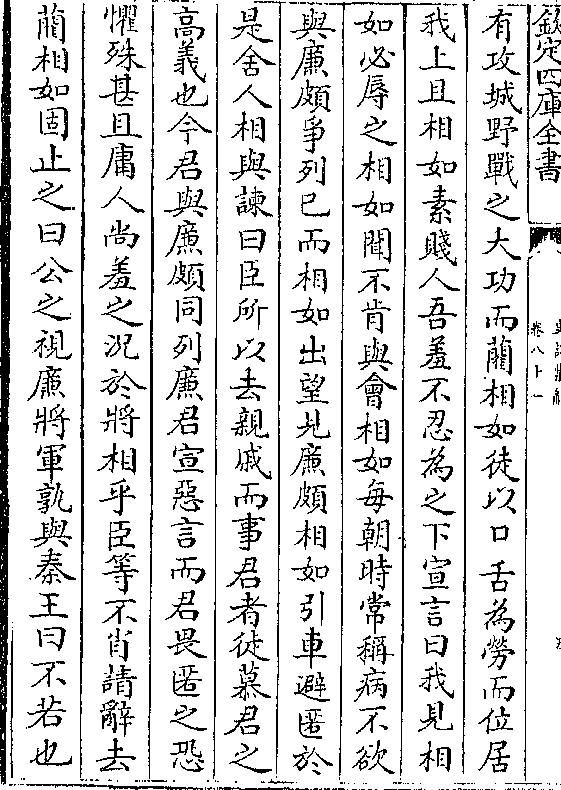 欽定四庫全書
卷八十一
有攻城野戰之大功而藺相如徒以口舌為勞而位居
我上且相如素賤人吾羞不忍為之下宣言曰我見相
如必辱之相如聞不肯與會相如每朝時常稱病不欲
與廉頗爭列已而相如出望見廉頗相如引車避匿於
是舍人相與諫曰臣所以去親戚而事君者徒慕君之
高義也今君與廉頗同列廉君宣惡言而君畏匿之恐
懼殊甚且庸人尚羞之况於將相乎臣等不肖請辭去
藺相如固止之曰公之視廉將軍孰與秦王曰不若也